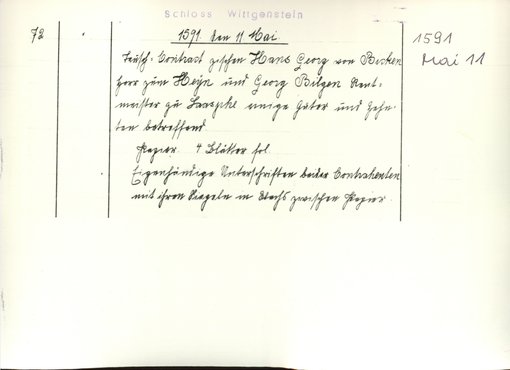 Schloss Wittgenstein
72
1591 den 11 Mai
1591
Mai 11
Tausch-Contract zwischen Hans Georg von Bicken
Herr zum Hayn und Georg Bilgen Rent-
meister zu Laasphe einige Güter und Zehn-
ten betreffend
Papier. 4 Blätter fol.
Eigenhändige Unterschriften beider Contrahenten
mit ihren Siegeln in Wachs zwischen Papier.